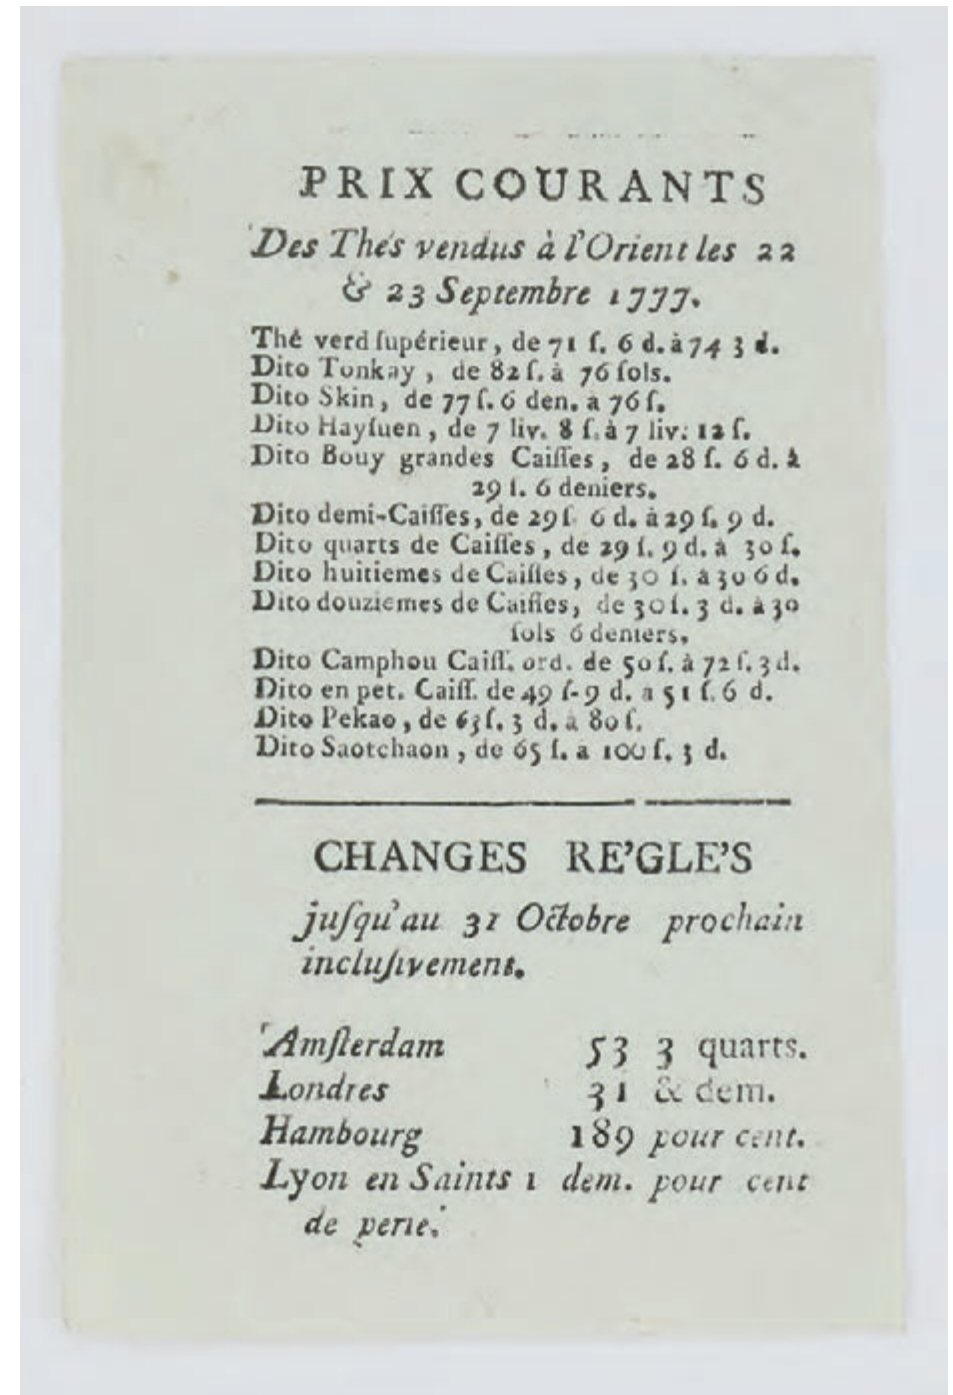 PRIX COURANTS
Des Thés vendus à l'Orient les 22
& 23 Septembre 1777.
Thé verd ſupérieur, de 71 ſ. 6 d. à 74 3 d.
Dito Tonkay, de 82 ſ. à 76 ſols.
Dito Skin, de 77 ſ. 6 den. a 76 ſ.
Dito Hayſuen, de 7 liv. 8 ſ. à 7 liv. 12 ſ.
Dito Bouy grandes Caiſſes, de 28 ſ. 6 d. à
29 ſ. 6 deniers.
Dito demi-Caiſſes, de 29 ſ. 6 d. à 29 ſ. 9 d.
Dito quarts de Caiſſes, de 29 ſ. 9 d. à 30 ſ.
Dito huitiemes de Caiſſes, de 30 ſ. à 30 6 d.
Dito douziemes de Caiſſes, de 30 ſ. 3 d. à 30
ſols 6 deniers.
Dito Camphou Caiſſ. ord. de 50 ſ. à 72 ſ. 3 d.
Dito en pet. Caiſſ. de 49 ſ-9 d. a 51 ſ. 6 d.
Dito Pekao, de 63 ſ. 3 d. à 80 ſ.
Dito Saotchaon, de 65 ſ. a 100 ſ. 3 d.
CHANGES RE'GLE'S
juſqu'au 31 Octobre prochain
incluſivement.
Amſterdam 53 3 quarts.
Londres 31 & dem.
Hambourg 189 pour cent.
Lyon en Saints 1 dem. pour cent
de perte.